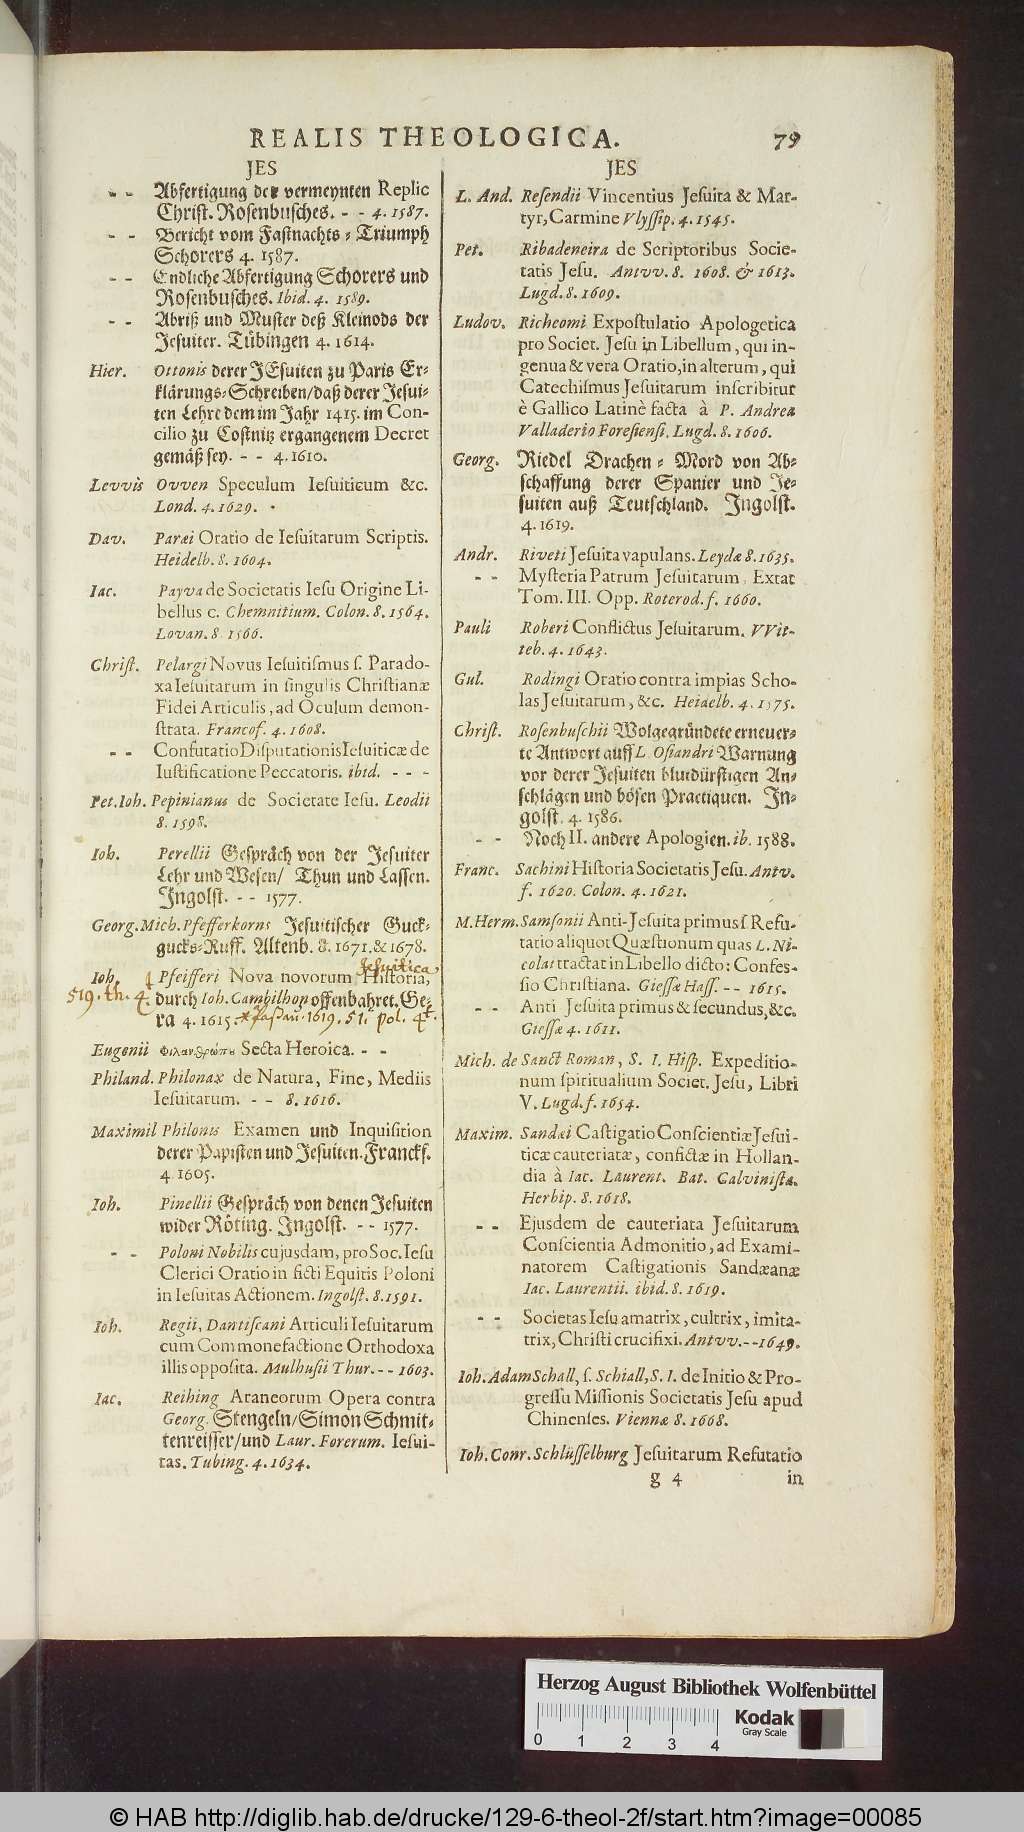 REALIS THEOLOGICA. 79
JES
- - Abfertigung der vermeynten Replic
Christ. Rosenbusches. - - 4. 1587.
- - Bericht vom Fastnachts-Triumph
Schorers 4. 1587.
- - Endliche Abfertigung Schorers und
Rosenbusches. Ibid. 4. 1589.
- - Abriß und Muster deß Kleinods der
Jesuiter. Tübingen 4. 1614.
Hier. Ottonis derer JEsuiten zu Paris Er-
klärungs-Schreiben/daß derer Jesui-
ten Lehre dem im Jahr 1415. im Con-
cilio zu Costnitz ergangenem Decret
gemäß sey. - - 4. 1610.
Levvis Ovven Speculum Iesuiticum &c.
Lond. 4. 1629.
Dav. Paræi Oratio de Iesuitarum Scriptis.
Heidelb. 8. 1604.
Iac. Payva de Societatis Iesu Origine Li-
bellus c. Chemnitium. Colon. 8. 1564.
Lovan. 8 1566.
Christ. Pelargi Novus Iesuitismus s. Parado-
xa Iesuitarum in singulis Christianæ
Fidei Articulis, ad Oculum demon-
strata. Francof. 4. 1608.
- - Confutatio Disputationis Iesuiticæ de
Iustificatione Peccatoris. ibid. - - -
Pet. Ioh. Pepinianus de Societate Iesu. Leodii
8. 1598.
Ioh. Perellii Gespräch von der Jesuiter
Lehr und Wesen/ Thun und Lassen.
Ingolst. - - 1577.
Georg. Mich. Pfefferkorns Jesuitischer Guck-
gucks-Ruff. Altenb. 8. 1671. & 1678.
Jesuitica
Ioh. Pfeifferi Nova novorum Historia,
519. th. 4. durch Ioh. Cambilhon offenbahret. Ge-
ra 4. 1615. * 1619. 51. pol. 4t.
Eugenii Φιλανθρώπυ Secta Heroica. - -
Philand. Philonax de Natura, Fine, Mediis
Iesuitarum. - - 8. 1616.
Maximil Philonis Examen und Inquisition
derer Papisten und Jesuiten. Franckf.
4 1605.
Ioh. Pinellii Gespräch von denen Jesuiten
wider Röting. Ingolst. - - 1577.
- - Poloni Nobilis cujusdam, pro Soc. Iesu
Clerici Oratio in ficti Equitis Poloni
in Iesuitas Actionem. Ingolst. 8. 1591.
Ioh. Regii, Dantiscani Articuli Iesuitarum
cum Commonefactione Orthodoxa
illis opposita. Mulhusii Thur. - - 1603.
Iac. Reihing Araneorum Opera contra
Georg. Stengeln/Simon Schmit-
tenreisser/und Laur. Forerum. Iesui-
tas. Tubing. 4. 1634.
JES
L. And. Resendii Vincentius Jesuita & Mar-
tyr, Carmine Vlyssip. 4. 1545.
Pet. Ribadeneira de Scriptoribus Socie-
tatis Jesu. Antvv. 8. 1608. & 1613.
Lugd. 8. 1609.
Ludov. Richeomi Expostulatio Apologetica
pro Societ. Jesu in Libellum, qui in-
genua & vera Oratio, in alterum, qui
Catechismus Jesuitarum inscribitur
è Gallico Latinè facta à P. Andrea
Valladerio Foresiensi. Lugd. 8. 1606.
Georg. Riedel Drachen-Mord von Ab-
schaffung derer Spanier und Je-
suiten auß Teutschland. Ingolst.
4. 1619.
Andr. Riveti Jesuita vapulans. Leydæ 8. 1635.
- - Mysteria Patrum Jesuitarum. Extat
Tom. III. Opp. Roterod. f. 1660.
Pauli Roberi Conflictus Jesuitarum. VVit-
teb. 4. 1643.
Gul. Rodingi Oratio contra impias Scho-
las Jesuitarum, &c. Heidelb. 4. 1575.
Christ. Rosenbuschii Wolgegründete erneuer-
te Antwort auff L. Osiandri Warnung
vor derer Jesuiten blutdürstigen An-
schlägen und bösen Practiquen. In-
golst. 4. 1586.
- - Noch II. andere Apologien. ib. 1588.
Franc. Sachini Historia Societatis Jesu. Antv.
f. 1620. Colon. 4. 1621.
M. Herm. Samsonii Anti-Jesuita primus s Refu-
tatio aliquot Quæstionum quas L. Ni-
colai tractat in Libello dicto: Confes-
sio Christiana. Giessæ Hass. - - 1615.
- - Anti Jesuita primus & secundus, &c.
Giessæ 4. 1611.
Mich. de Sanct Roman, S. I. Hisp. Expeditio-
num spiritualium Societ. Jesu, Libri
V. Lugd. f. 1654.
Maxim. Sandæi Castigatio Conscientiæ Jesui-
ticæ cauteriatæ, confictæ in Hollan-
dia à Iac. Laurent. Bat. Calvinista.
Herbip. 8. 1618.
- - Ejusdem de cauteriata Jesuitarum
Conscientia Admonitio, ad Exami-
natorem Castigationis Sandæanæ
Iac. Laurentii. ibid. 8. 1619.
- - Societas Iesu amatrix, cultrix, imita-
trix, Christi crucifixi. Antvv. - - 1649.
Ioh. Adam Schall, s. Schiall, S. I. de Initio & Pro-
gressu Missionis Societatis Jesu apud
Chinenses. Viennæ 8. 1668.
Ioh. Conr. Schlüsselburg Jesuitarum Refutatio
g 4 in
Herzog August Bibliothek Wolfenbüttel
0 1 2 3 4
Kodak
Gray Scale
© HAB http://diglib.hab.de/drucke/129-6-theol-2f/start.htm?image=00085